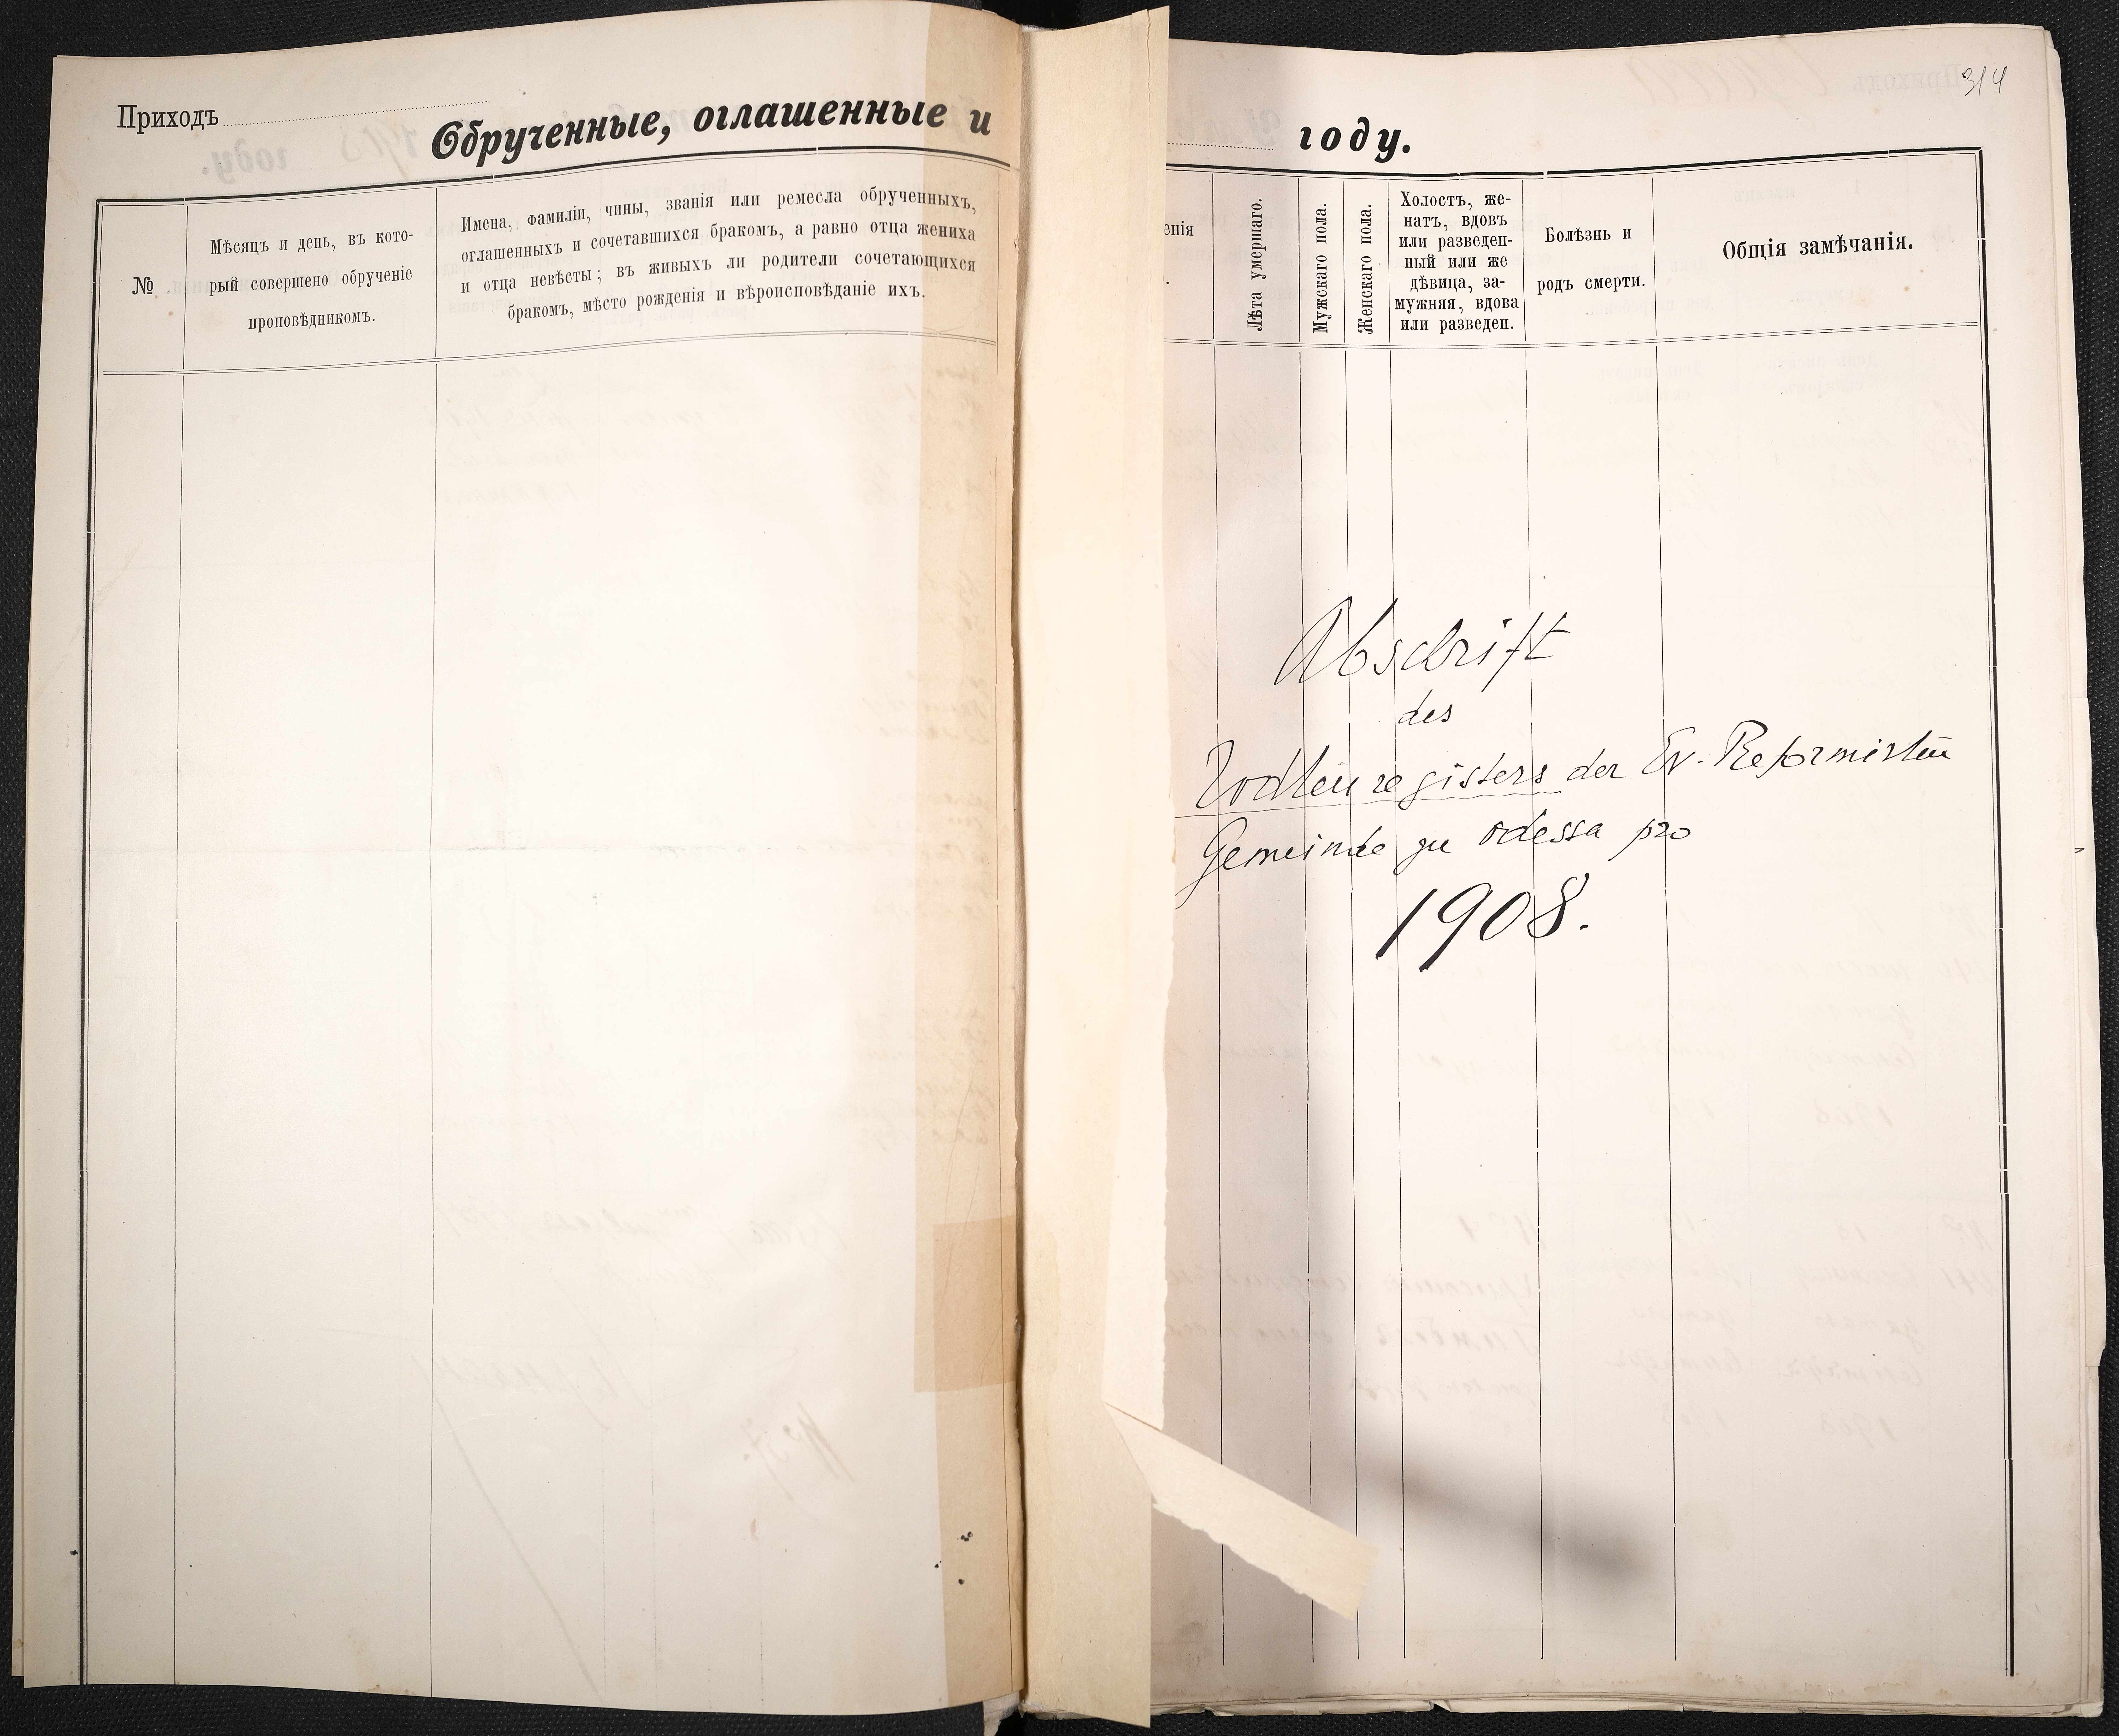 Приходъ
Обрученные, оглашенные и
№
Мѣсяцъ и день, въ кото-
рый совершено обрученіе
проповѣдникомъ.
Имена, фамиліи, чины, званія или ремесла обрученныхъ,
оглашенныхъ и сочетавшихся бракомъ, а равно отца жениха
и отца невѣсты; въ живыхъ ли родители сочетающихся
бракомъ, мѣсто рожденія и вѣроисповѣданіе ихъ.
314
году.
енія
Лѣта умершаго.
Мужскаго пола.
Женскаго пола.
Холостъ, же-
натъ, вдовъ
или разведен-
ный или же
дѣвица, за-
мужняя, вдова
или разведен.
Болѣзнь и
родъ смерти.
Общія замѣчанія.
Abschrift
des
Todtenregisters der Ev. Reformirten
Gemeinde zu Odessa pro
1908.